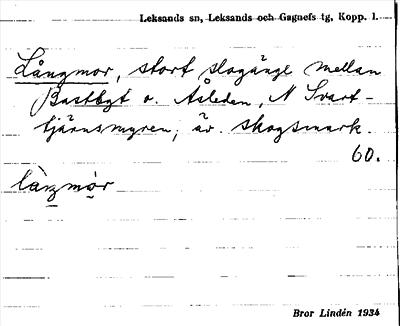 Leksands sn, Leksands och Gagnefs tg, Kopp. l.
Långmor, stort slogänge mellan
Bastbgt o. Åsleden, N Svart-
tjärnsmyren; äv. skogsmark.
60.
làŋmòr
Bror Lindén 1934